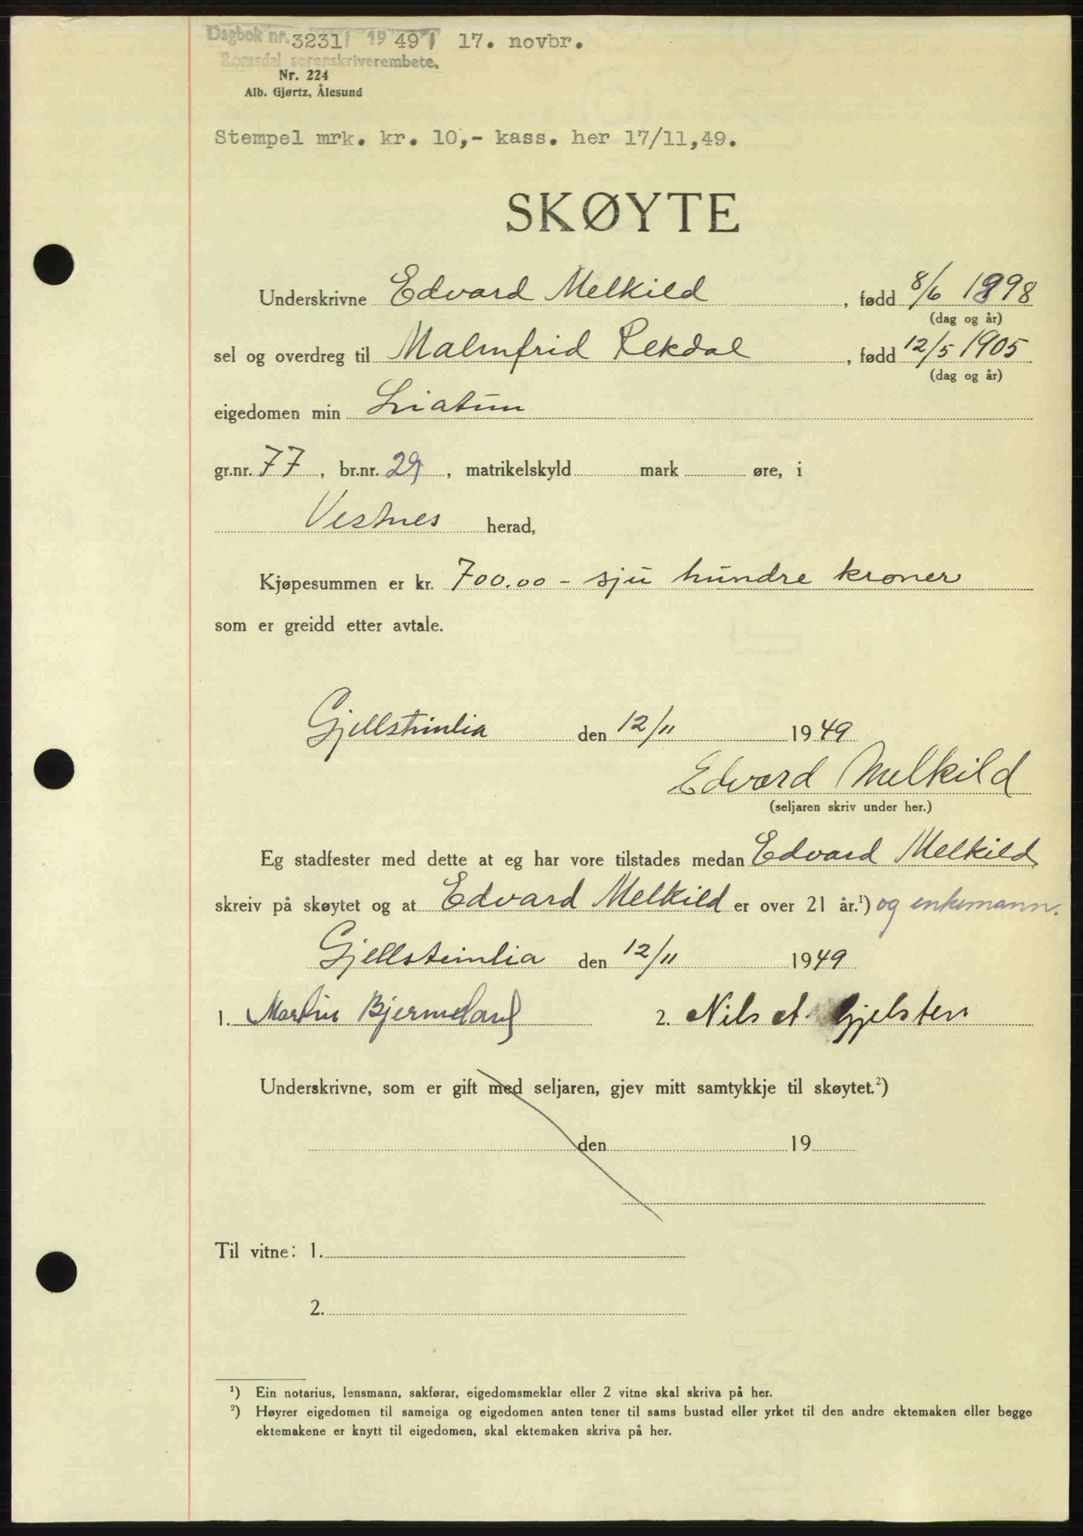 Dagbok nr. 3231 1949 17. novbr.
Romsdal sorenskriverembete.
Nr. 224
Alb. Gjørtz, Ålesund
Stempel mrk. kr. 10,- kass. her 17/11,49.
SKØYTE
Underskrivne Edvard Melkild , fødd 8/6 1898
(dag og år)
sel og overdreg til Malmfrid Rekdal , fødd 12/5 1905
(dag og år)
eigedomen min Liatun
gr.nr. 77 , br.nr. 29 , matrikelskyld mark øre, i
Vestnes herad,
Kjøpesummen er kr. 700.00 - sju hundre kroner
som er greidd etter avtale.
Gjellsteinlia den 12/11 1949
Edvard Melkild
(seljaren skriv under her.)
Eg stadfester med dette at eg har vore tilstades medan Edvard Melkild
skreiv på skøytet og at Edvard Melkild er over 21 år.¹) og enkemann.
Gjellsteinlia den 12/11 1949
1. Martin Bjermeland 2. Nils A Gjelsten
Underskrivne, som er gift med seljaren, gjev mitt samtykkje til skøytet.²)
den 19
Til vitne: 1.
2.
¹) Ein notarius, lensmann, sakførar, eigedomsmeklar eller 2 vitne skal skriva på her.
²) Høyrer eigedomen til sameiga og eigedomen anten tener til sams bustad eller yrket til den andre ektemaken eller begge
ektemakene er knytt til eigedomen, skal ektemaken skriva på her.